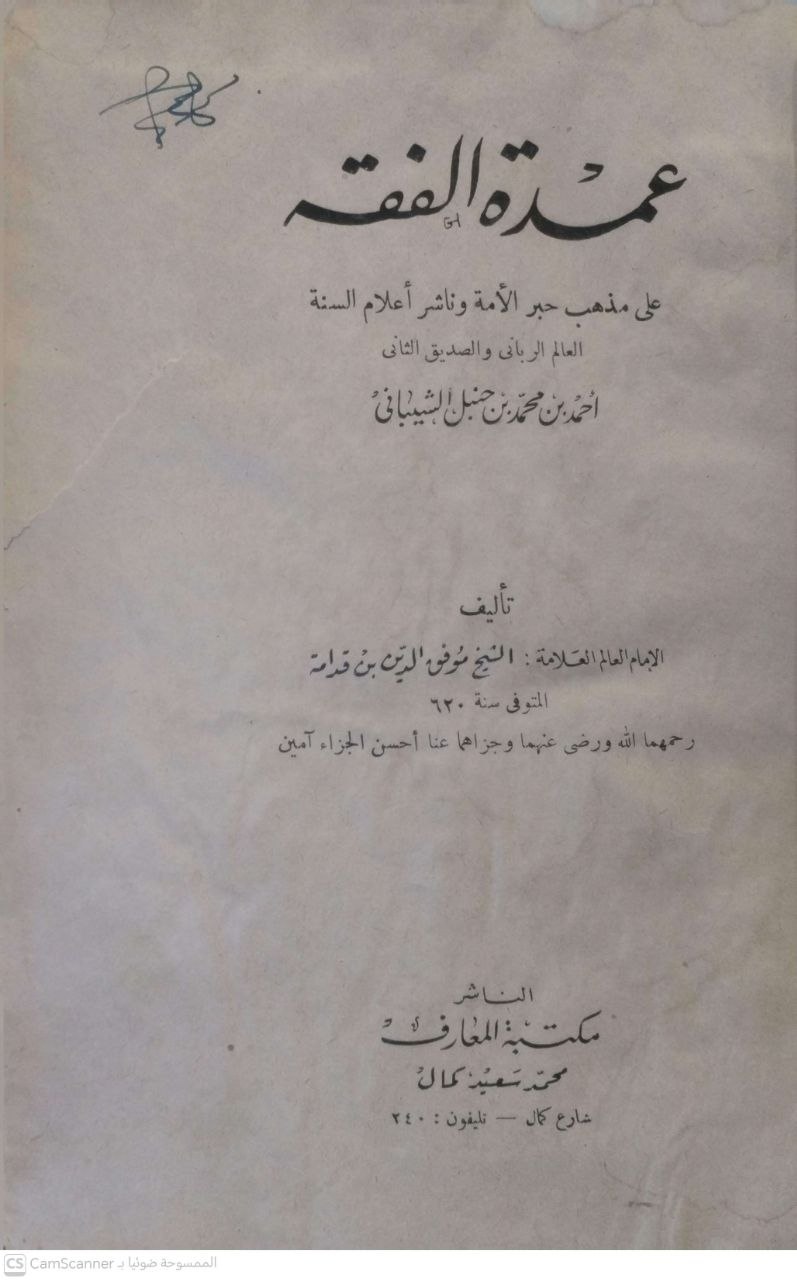 عمدة الفقه
على مذهب حبر الأمة وناشر أعلام السنة
العالم الربانى والصديق الثانى
أحمد بن محمد بن حنبل الشيبانى
تأليف
الإمام العالم العلامة : الشيخ موفق الدين بن قدامة
المتوفى سنة ٦٢٠
رحمهما الله ورضى عنهما وجزاهما عنا أحسن الجزاء آمين
الناشر
مكتبة المعارف
محمد سعيد كمال
شارع كمال — تليفون : ٢٤٠
CS CamScanner الممسوحة ضوئيا بـ